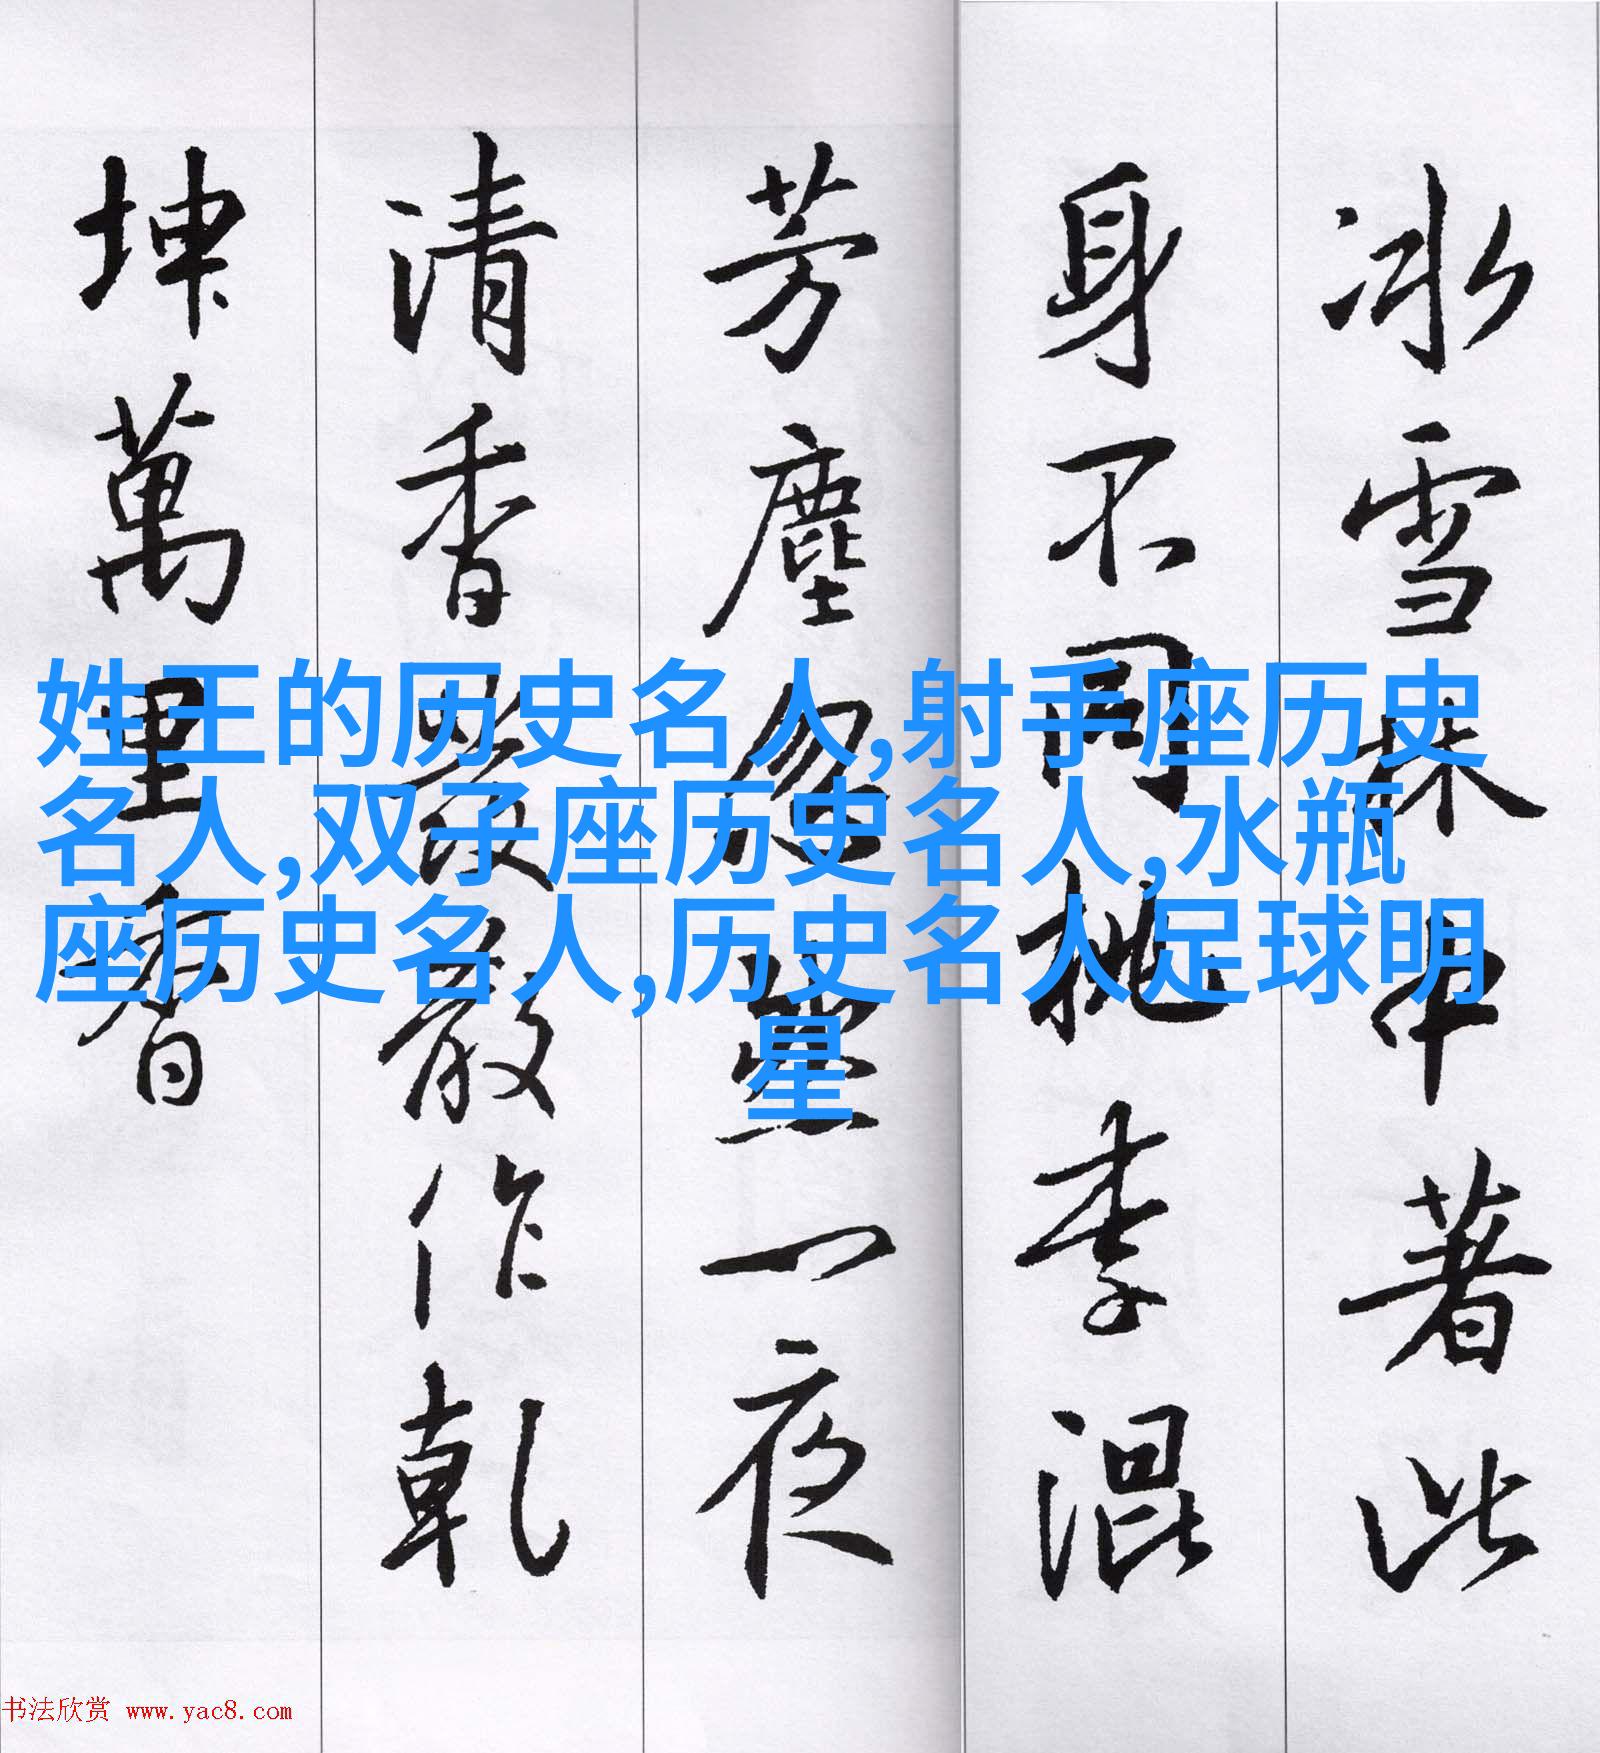 冰雪林中著此
身不同桃李混
芳塵忽然一夜
清香發散作乾
坤萬里香
姓王的历史名人,射手座历史
名人,双子座历史名人,水瓶
座历史名人,历史名人足球明
星
书法欣赏 www.yac8.com